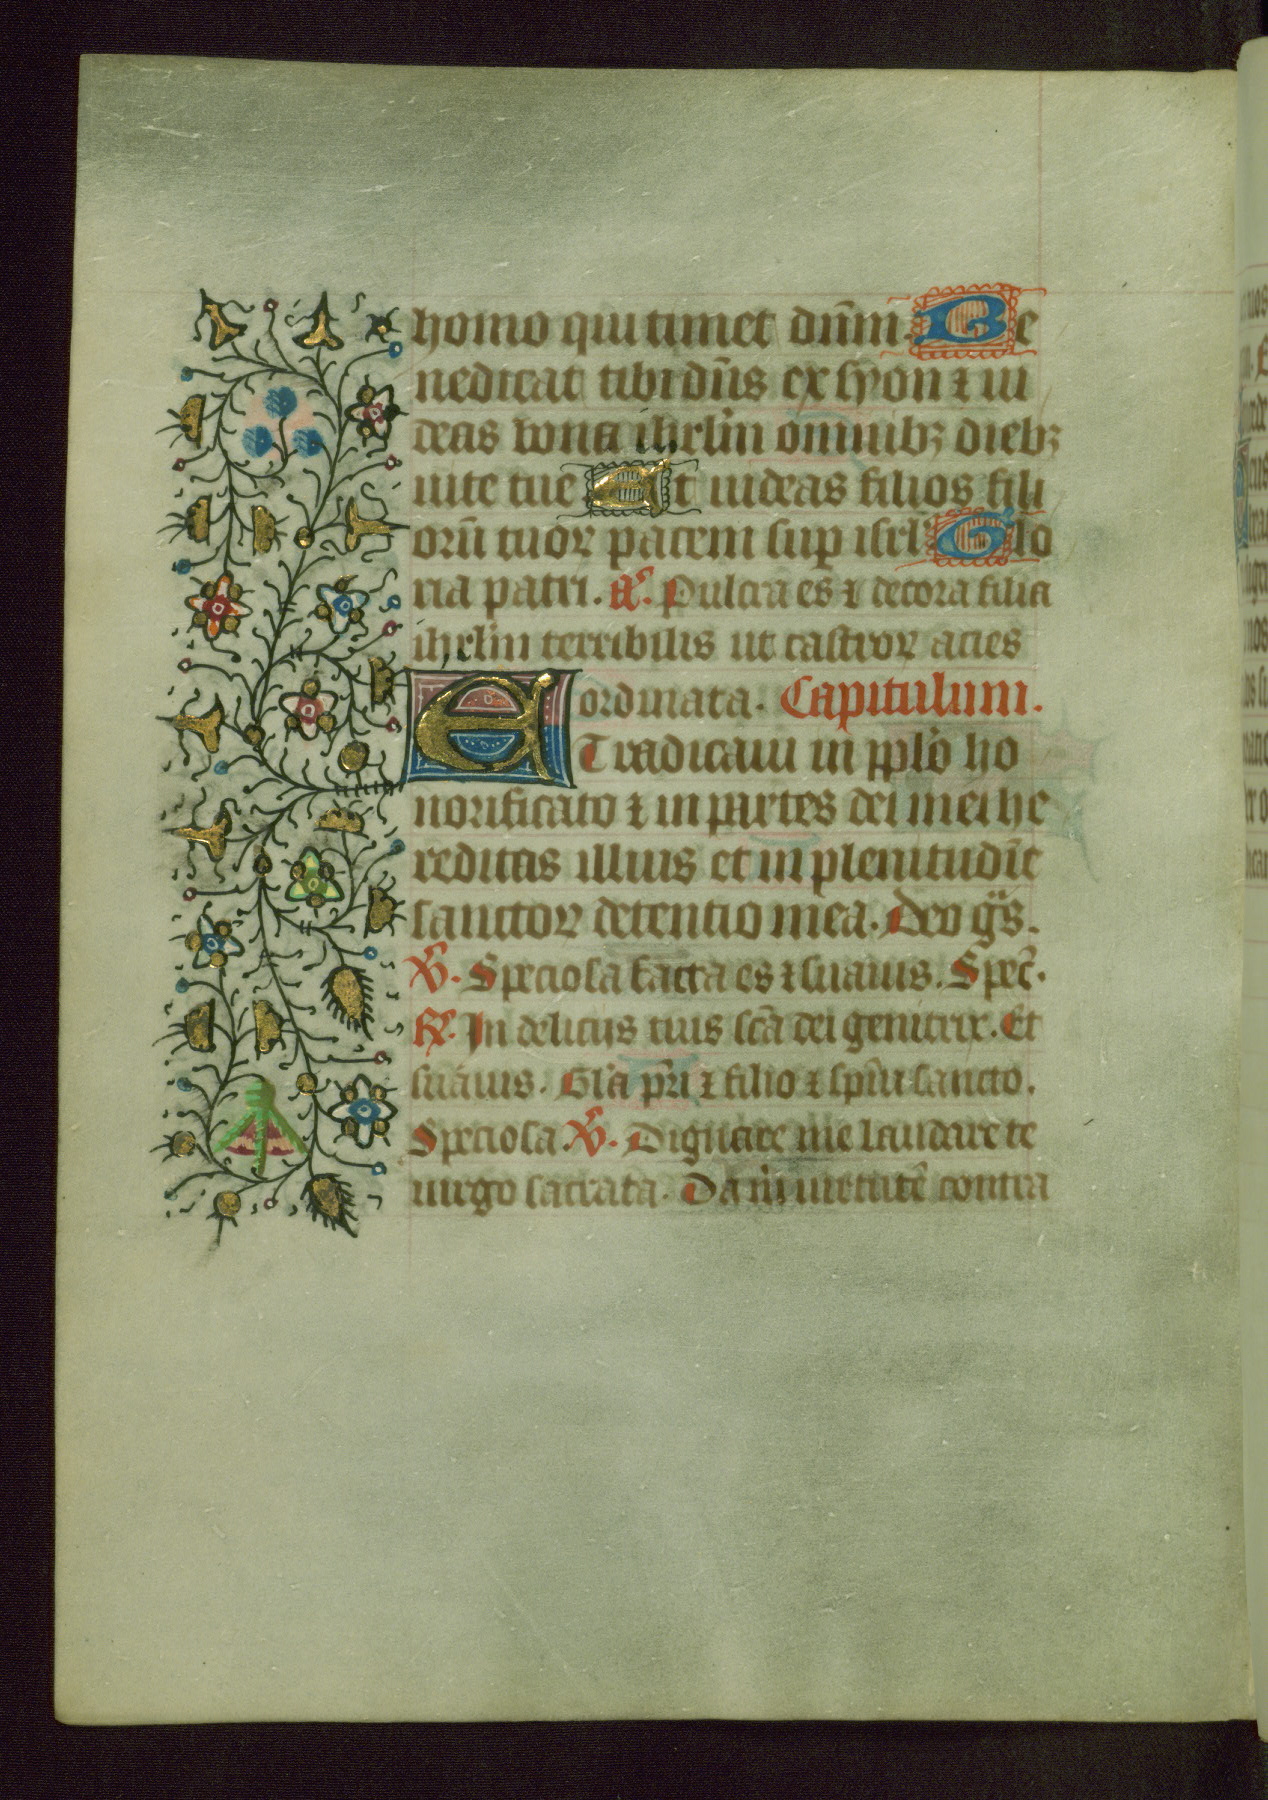 homo qui timet dn̄m. Be
nedicat tibi dn̄s ex syon ⁊ ui
deas bona ihrl̄m omnibꝫ diebꝫ
uite tue Et uideas filios fili
orū tuoꝝ pacem sup̱ isrl̄ Glo
ria patri. an̄. Pulcra es ⁊ decora filia
ihrl̄m terribilis ut castroꝝ acies
ordinata. Capitulum.
ET radicaui in pp̄lo ho
norificato ⁊ in partes dei mei he
reditas illius et in plenitudīe
sanctoꝝ detentio mea. Deo gr̄s.
℣. Speciosa facta es ⁊ suauis. Spec̄.
℟. In deliciis tuis sc̄a dei genitrix. Et
suauis. Gl̄a pr̄i ⁊ filio ⁊ spū̄i sancto.
Speciosa. ℣. Dignare me laudare te
uirgo sacrata. Da m̄i uirtutē contra